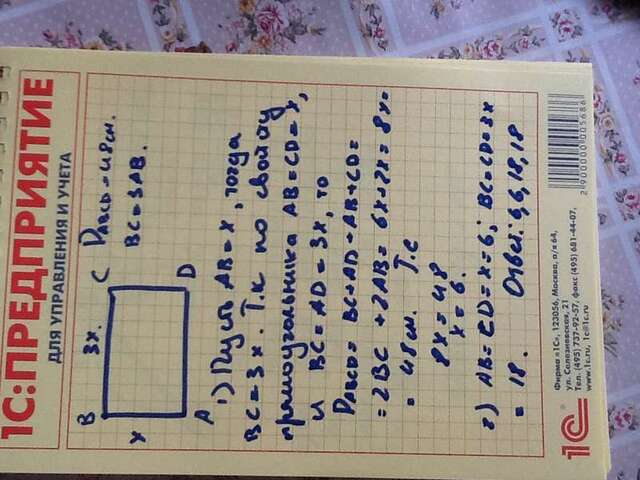 1С:ПРЕДПРИЯТИЕ
ДЛЯ УПРАВЛЕНИЯ И УЧЕТА
B 3x. C Pabcd=48см.
x BC=3AB.
A D
1) Пусть AB=x, тогда
BC=3x. Т.к по свойству
прямоугольника AB=CD=x,
и BC=AD=3x, то
Pabcd=BC+AD+AB+CD=
=2BC+2AB=6x+2x=8x=
=48см. Т.с
8x=48
x=6.
2) AB=CD=x=6; BC=CD=3x
=18. Ответ: 6,6,18,18
1С
Фирма «1С», 123056, Москва, а/я 64,
ул. Селезневская, 21
Тел. (495) 737-92-57, факс (495) 681-44-07,
www.1c.ru, 1c@1c.ru
2900000005686